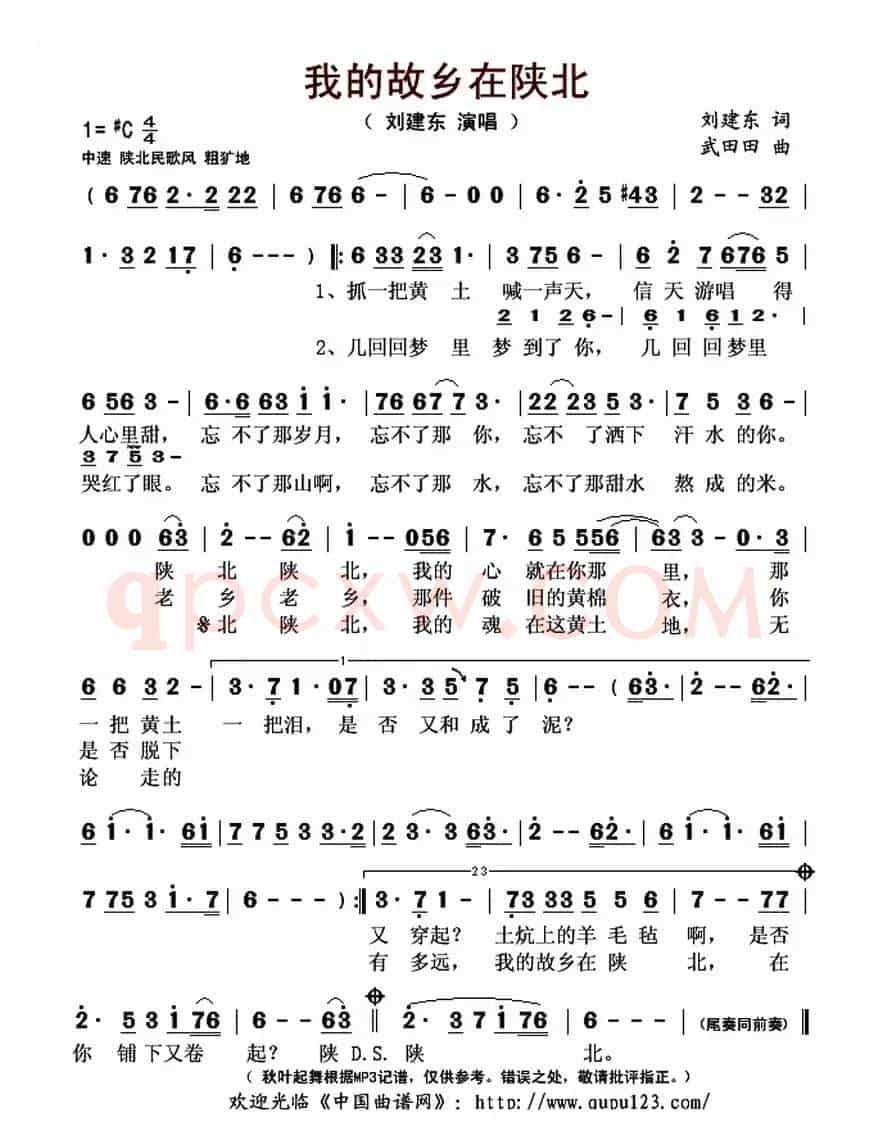 我的故乡在陕北
（ 刘建东 演唱 ）
1= #C 4/4
刘建东 词
武田田 曲
中速 陕北民歌风 粗犷地
( 6 76 2· 2 22 | 6 76 6 - | 6 - 0 0 | 6· 2 5 #43 | 2 - - 32 |
1· 3 2 17 | 6 - - - ) ‖: 6 33 23 1· | 3 75 6 - | 6 2 7 676 5 |
1、抓一把黄 土 喊一声天， 信 天 游唱 得
2 1 2 6 - | 6 1 6 1 2· |
2、几回回梦 里 梦 到了 你， 几 回 回梦里
6 56 3 - | 6· 6 63 1 1· | 76 67 7 3· | 22 23 5 3 | 7 5 3 6 - |
人心里甜， 忘 不了那岁月， 忘不了那 你，忘不 了洒下 汗 水 的你。
3 7 5 3 -
哭红了眼。 忘 不了那山啊， 忘不了那 水，忘不了那甜水 熬 成 的米。
0 0 0 63 | 2 - - 62 | 1 - - 056 | 7· 6 5 556 | 63 3 - 0· 3 |
陕 北 陕 北， 我的 心 就在你那 里， 那
老 乡 老 乡， 那件 破 旧的黄棉 衣， 你
北 陕 北， 我的 魂 在这黄土 地， 无
1
6 6 3 2 - | 3· 7 1· 07 | 3· 3 5 7 5 | 6 - - ( 63· | 2 - - 62· |
一 把 黄土 一 把泪， 是 否 又和 成 了 泥？
是 否 脱下
论 走的
6 1· 1· 61 | 7 75 3 3·2 | 2 3· 3 63· | 2 - - 62· | 6 1· 1· 61 |
2 3
7 75 3 1· 7 | 6 - - - ) :‖ 3· 7 1 - | 73 33 5 5 6 | 7 - - 77 |
又 穿起？ 土炕上的羊 毛 毡 啊， 是否
有 多远， 我的故乡在 陕 北， 在
2· 5 3 1 76 | 6 - - 63 ‖ 2· 3 7 1 76 | 6 - - - （尾奏同前奏） ‖
你 铺 下又卷 起？ 陕 D.S. 陕 北。
（ 秋叶起舞根据MP3记谱，仅供参考。错误之处，敬请批评指正。）
欢迎光临《中国曲谱网》：http://www.qupu123.com/
qpcxw.COM